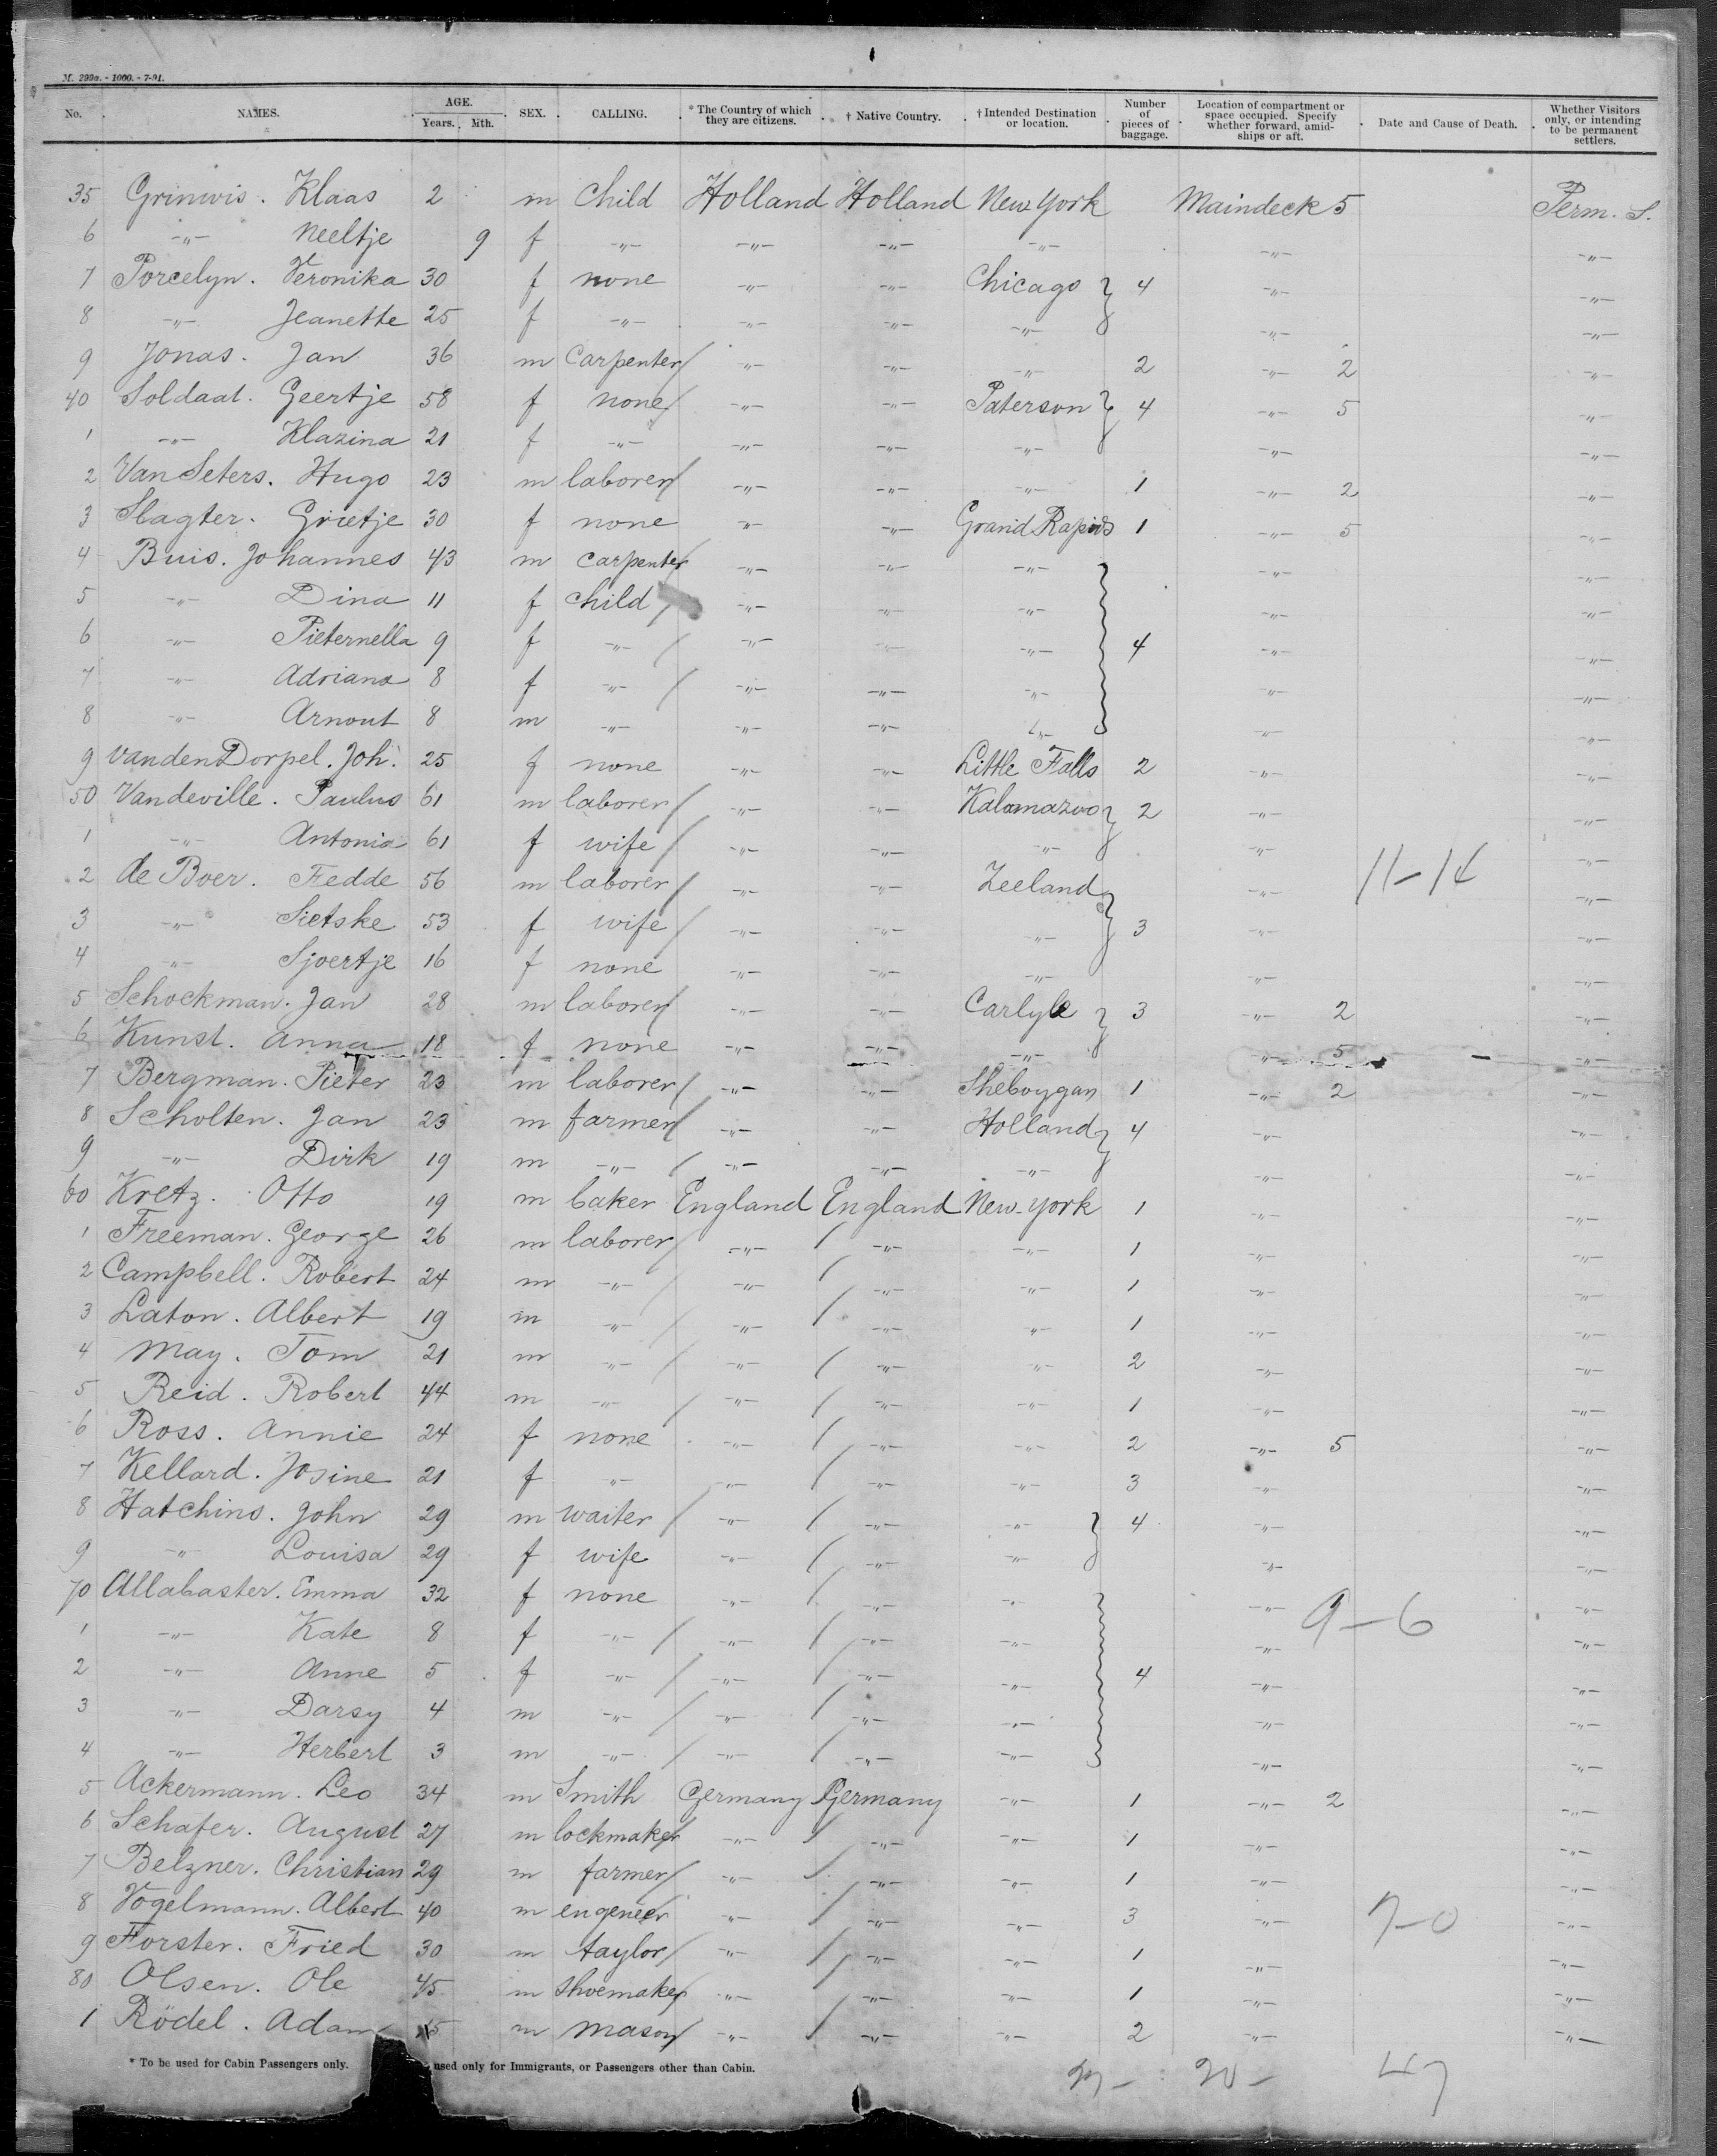 M. 290a. - 1000. - 7-91.
No. NAMES. AGE. Years. Mth. SEX. CALLING. * The Country of which they are citizens. † Native Country. † Intended Destination or location. Number of pieces of baggage. Location of compartment or space occupied. Specify whether forward, amidships or aft. Date and Cause of Death. Whether Visitors only, or intending to be permanent settlers.
35 Grinwis. Klaas 2 m Child Holland Holland New York Maindeck 5 Perm. S.
6 -"- Neeltje 9 f -"- -"- -"- -"- -"- -"-
7 Porcelyn. Veronika 30 f none -"- -"- Chicago } 4 -"- -"-
8 -"- Jeanette 25 f -"- -"- -"- -"- -"- -"-
9 Jonas. Jan 36 m Carpenter -"- -"- -"- 2 -"- 2 -"-
40 Soldaat. Geertje 58 f none -"- -"- Paterson } 4 -"- 5 -"-
1 -"- Klazina 21 f -"- -"- -"- -"- -"- -"-
2 Van Seters. Hugo 23 m laborer -"- -"- -"- 1 -"- 2 -"-
3 Slagter. Grietje 30 f none -"- -"- Grand Rapids 1 -"- 5 -"-
4 Buis. Johannes 43 m carpenter -"- -"- -"- -"- -"-
5 -"- Dina 11 f child -"- -"- -"- -"- -"-
6 -"- Pieternella 9 f -"- -"- -"- -"- } 4 -"- -"-
7 -"- Adriana 8 f -"- -"- -"- -"- -"- -"-
8 -"- Arnout 8 m -"- -"- -"- -"- -"- -"-
9 van den Dorpel. Joh. 25 f none -"- -"- Little Falls 2 -"- -"-
50 Vandeville. Paulus 61 m laborer -"- -"- Kalamazoo } 2 -"- -"-
1 -"- Antonia 61 f wife -"- -"- -"- -"- -"-
2 de Boer. Fedde 56 m laborer -"- -"- Zeeland -"- 11-14 -"-
3 -"- Sietske 53 f wife -"- -"- -"- } 3 -"- -"-
4 -"- Sjoertje 16 f none -"- -"- -"- -"- -"-
5 Schockman. Jan 28 m laborer -"- -"- Carlyle } 3 -"- 2 -"-
6 Kunst. Anna 18 f none -"- -"- -"- -"- 5 -"-
7 Bergman. Pieter 23 m laborer -"- -"- Sheboygan 1 -"- 2 -"-
8 Scholten. Jan 23 m farmer -"- -"- Holland } 4 -"- -"-
9 -"- Dirk 19 m -"- -"- -"- -"- -"- -"-
60 Kretz. Otto 19 m baker England England New-York 1 -"- -"-
1 Freeman. George 26 m laborer -"- -"- -"- 1 -"- -"-
2 Campbell. Robert 24 m -"- -"- -"- -"- 1 -"- -"-
3 Laton. Albert 19 m -"- -"- -"- -"- 1 -"- -"-
4 May. Tom 21 m -"- -"- -"- -"- 2 -"- -"-
5 Reid. Robert 44 m -"- -"- -"- -"- 1 -"- -"-
6 Ross. Annie 24 f none -"- -"- -"- 2 -"- 5 -"-
7 Kellard. Josine 21 f -"- -"- -"- -"- 3 -"- -"-
8 Hatchins. John 29 m waiter -"- -"- -"- } 4 -"- -"-
9 -"- Louisa 29 f wife -"- -"- -"- -"- -"-
70 Allabaster. Emma 32 f none -"- -"- -"- -"- 9-6 -"-
1 -"- Kate 8 f -"- -"- -"- -"- -"- -"-
2 -"- Anne 5 f -"- -"- -"- -"- } 4 -"- -"-
3 -"- Darsy 4 m -"- -"- -"- -"- -"- -"-
4 -"- Herbert 3 m -"- -"- -"- -"- -"- -"-
5 Ackermann. Leo 34 m Smith Germany Germany -"- 1 -"- 2 -"-
6 Schafer. August 27 m lockmaker -"- -"- -"- 1 -"- -"-
7 Belzner. Christian 29 m farmer -"- -"- -"- 1 -"- -"-
8 Vogelmann. Albert 40 m engeneer -"- -"- -"- 3 -"- 7-0 -"-
9 Forster. Fried 30 m taylor -"- -"- -"- 1 -"- -"-
80 Olsen. Ole 45 m shoemaker -"- -"- -"- 1 -"- -"-
1 Rödel. Adam m mason -"- -"- -"- 2 -"- -"-
* To be used for Cabin Passengers only. used only for Immigrants, or Passengers other than Cabin.
20 - 47